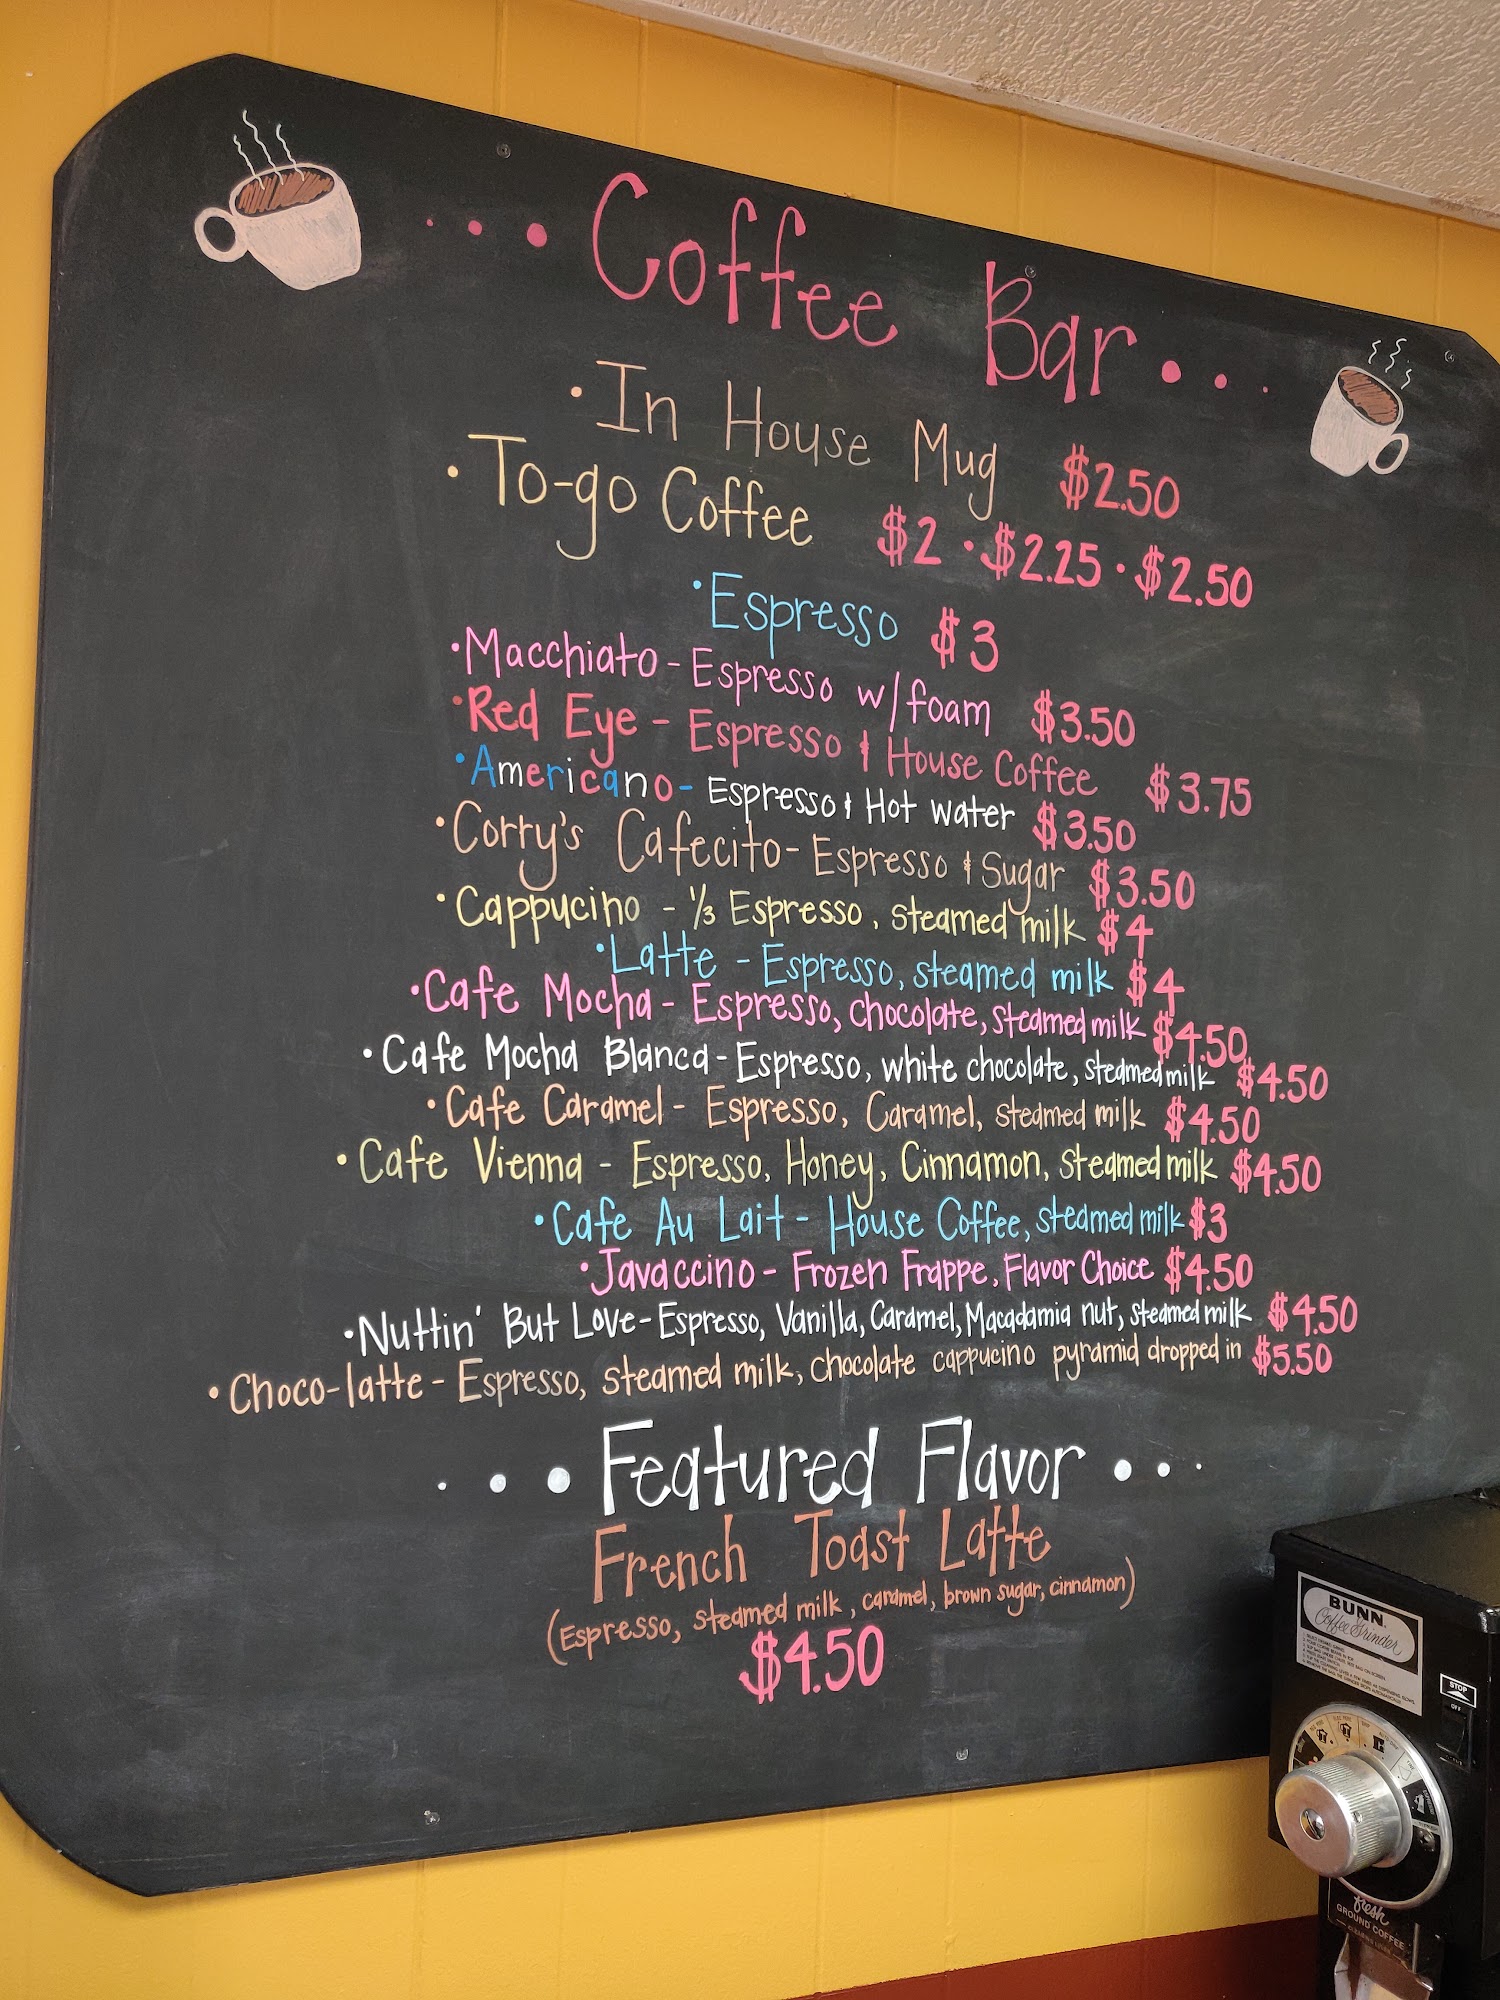 ... Coffee Bar ...
• In House Mug $2.50
• To-go Coffee $2 • $2.25 • $2.50
• Espresso $3
• Macchiato - Espresso w/foam $3.50
• Red Eye - Espresso & House Coffee $3.75
• Americano - Espresso & Hot water $3.50
• Corry's Cafecito - Espresso & Sugar $3.50
• Cappucino - 1/3 Espresso, steamed milk $4
• Latte - Espresso, steamed milk $4
• Cafe Mocha - Espresso, chocolate, steamed milk $4.50
• Cafe Mocha Blanca - Espresso, white chocolate, steamed milk $4.50
• Cafe Caramel - Espresso, Caramel, steamed milk $4.50
• Cafe Vienna - Espresso, Honey, Cinnamon, steamed milk $4.50
• Cafe Au Lait - House Coffee, steamed milk $3
• Javaccino - Frozen Frappe, Flavor Choice $4.50
• Nuttin' But Love - Espresso, Vanilla, Caramel, Macadamia nut, steamed milk $4.50
• Choco-latte - Espresso, steamed milk, chocolate cappucino pyramid dropped in $5.50
... Featured Flavor ...
French Toast Latte
(Espresso, steamed milk, caramel, brown sugar, cinnamon)
$4.50
BUNN
Coffee Grinder
STOP
OFF
fresh
GROUND COFFEE